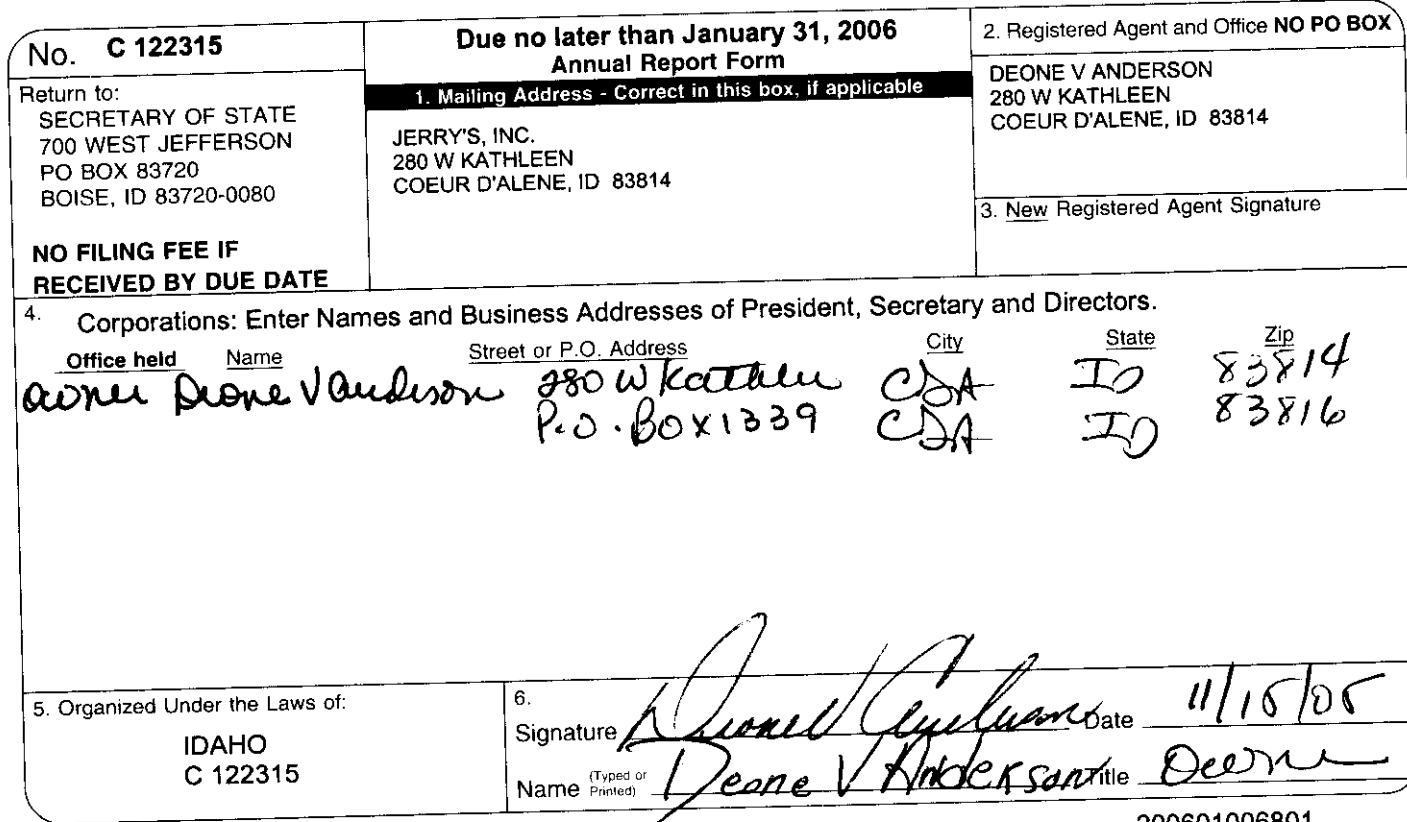 No. C 122315
Return to:
SECRETARY OF STATE
700 WEST JEFFERSON
PO BOX 83720
BOISE, ID 83720-0080
NO FILING FEE IF
RECEIVED BY DUE DATE
Due no later than January 31, 2006
Annual Report Form
1. Mailing Address - Correct in this box, if applicable
JERRY'S, INC.
280 W KATHLEEN
COEUR D'ALENE, ID 83814
2. Registered Agent and Office NO PO BOX
DEONE V ANDERSON
280 W KATHLEEN
COEUR D'ALENE, ID 83814
3. New Registered Agent Signature
4. Corporations: Enter Names and Business Addresses of President, Secretary and Directors.
Office held Name Street or P.O. Address City State Zip
owner Deone V Anderson 280 W Kathleen CDA ID 83814
P.O. BOX 1339 CDA ID 83816
5. Organized Under the Laws of:
IDAHO
C 122315
6.
Signature Deone V Anderson Date 11/15/05
Name (Typed or Printed) Deone V Anderson Title Owner
200601006801